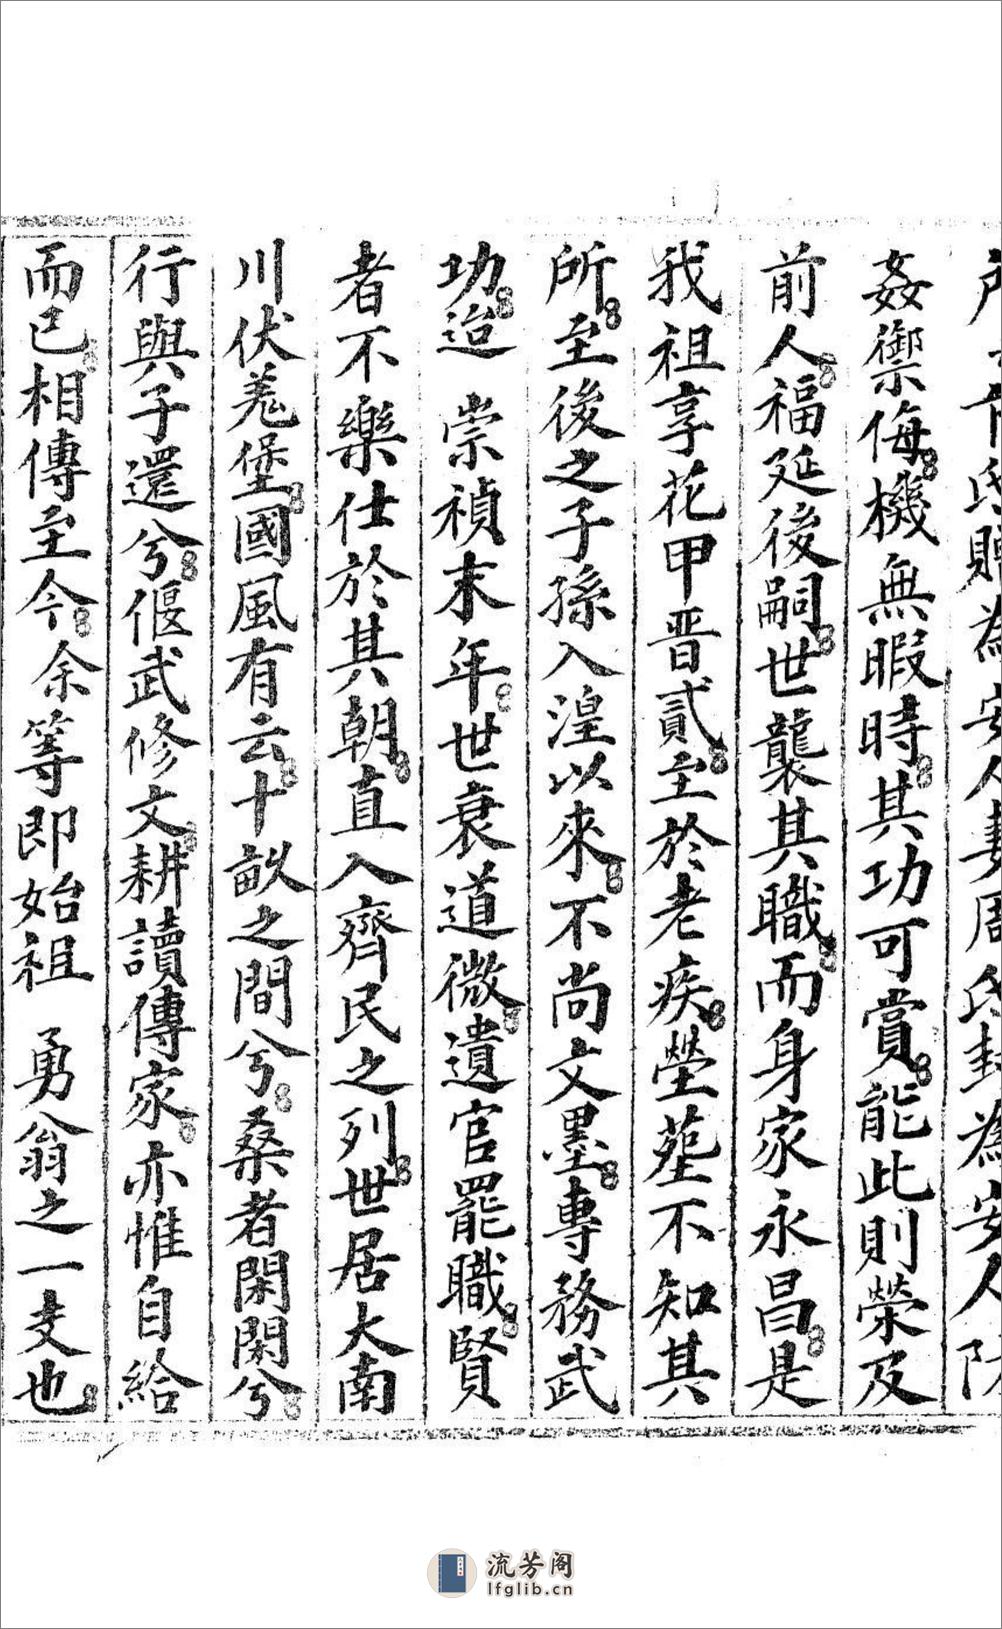 下氏贈為安人妻周氏封為安人防
姦禦侮機無暇時其功可賞能此則榮及
前人福延後嗣世襲其職而身家永昌是
我祖享花甲晋貳至於老疾塋塟不知其
所至後之子孫入湟以來不尚文墨專務武
功迨 崇禎末年世衰道微遺官罷職賢
者不樂仕於其朝直入齊民之列世居大南
川伏羗堡國風有云十畝之間兮桑者閑閑兮
行與子還兮偃武修文耕讀傳家亦惟自給
而已相傳至今余等即始祖 勇翁之一支也
流芳阁
lfglib.cn